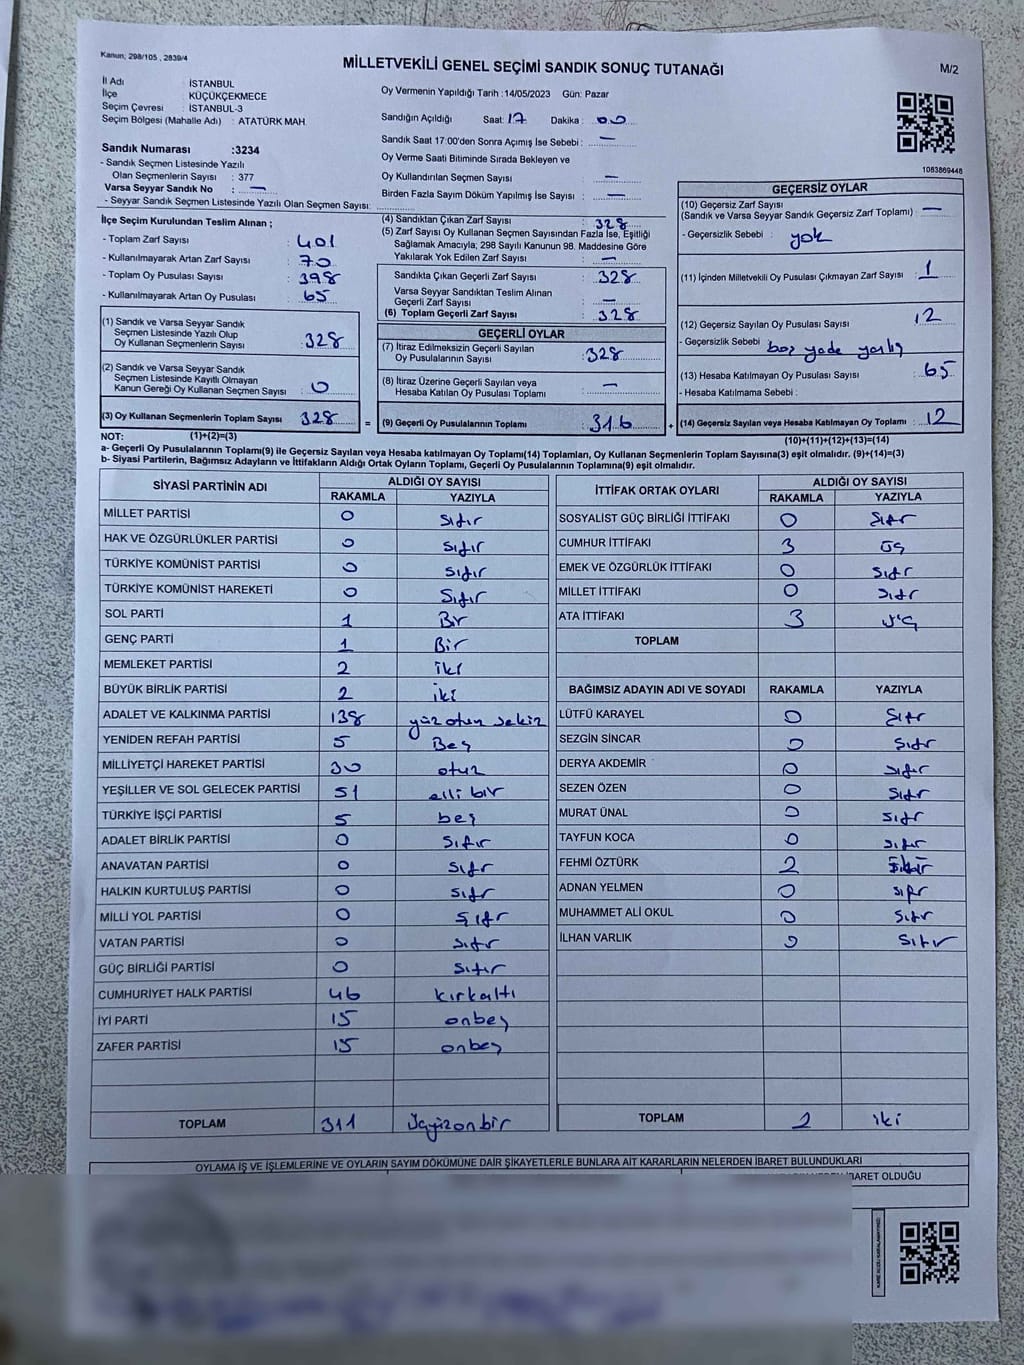 Kanun, 298/105 , 2839/4
MİLLETVEKİLİ GENEL SEÇİMİ SANDIK SONUÇ TUTANAĞI
M/2
İl Adı : İSTANBUL
İlçe : KÜÇÜKÇEKMECE
Seçim Çevresi : İSTANBUL-3
Seçim Bölgesi (Mahalle Adı) : ATATÜRK MAH.
Oy Vermenin Yapıldığı Tarih :14/05/2023 Gün: Pazar
Sandığın Açıldığı Saat: 17 Dakika : 00
Sandık Saat 17:00'den Sonra Açımış İse Sebebi : —
Oy Verme Saati Bitiminde Sırada Bekleyen ve
Oy Kullandırılan Seçmen Sayısı : —
Birden Fazla Sayım Döküm Yapılmış İse Sayısı : —
1083869448
Sandık Numarası :3234
- Sandık Seçmen Listesinde Yazılı
Olan Seçmenlerin Sayısı : 377
Varsa Seyyar Sandık No : —
- Seyyar Sandık Seçmen Listesinde Yazılı Olan Seçmen Sayısı:
İlçe Seçim Kurulundan Teslim Alınan ;
- Toplam Zarf Sayısı : 401
- Kullanılmayarak Artan Zarf Sayısı : 70
- Toplam Oy Pusulası Sayısı : 398
- Kullanılmayarak Artan Oy Pusulası : 65
(1) Sandık ve Varsa Seyyar Sandık
Seçmen Listesinde Yazılı Olup
Oy Kullanan Seçmenlerin Sayısı : 328
(2) Sandık ve Varsa Seyyar Sandık
Seçmen Listesinde Kayıtlı Olmayan
Kanun Gereği Oy Kullanan Seçmen Sayısı : 0
(3) Oy Kullanan Seçmenlerin Toplam Sayısı 328
(4) Sandıktan Çıkan Zarf Sayısı : 328
(5) Zarf Sayısı Oy Kullanan Seçmen Sayısından Fazla İse, Eşitliği
Sağlamak Amacıyla; 298 Sayılı Kanunun 98. Maddesine Göre
Yakılarak Yok Edilen Zarf Sayısı : —
Sandıkta Çıkan Geçerli Zarf Sayısı : 328
Varsa Seyyar Sandıktan Teslim Alınan
Geçerli Zarf Sayısı : —
(6) Toplam Geçerli Zarf Sayısı : 328
GEÇERLİ OYLAR
(7) İtiraz Edilmeksizin Geçerli Sayılan
Oy Pusulalarının Sayısı : 328
(8) İtiraz Üzerine Geçerli Sayılan veya
Hesaba Katılan Oy Pusulası Toplamı : —
= (9) Geçerli Oy Pusulalarının Toplamı : 316
GEÇERSİZ OYLAR
(10) Geçersiz Zarf Sayısı
(Sandık ve Varsa Seyyar Sandık Geçersiz Zarf Toplamı) : —
- Geçersizlik Sebebi : yok
(11) İçinden Milletvekili Oy Pusulası Çıkmayan Zarf Sayısı : 1
(12) Geçersiz Sayılan Oy Pusulası Sayısı : 12
- Geçersizlik Sebebi :
(13) Hesaba Katılmayan Oy Pusulası Sayısı : 65
- Hesaba Katılmama Sebebi :
+ (14) Geçersiz Sayılan veya Hesaba Katılmayan Oy Toplamı : 12
NOT: (1)+(2)=(3)
(10)+(11)+(12)+(13)=(14)
a- Geçerli Oy Pusulalarının Toplamı(9) ile Geçersiz Sayılan veya Hesaba katılmayan Oy Toplamı(14) Toplamları, Oy Kullanan Seçmenlerin Toplam Sayısına(3) eşit olmalıdır. (9)+(14)=(3)
b- Siyasi Partilerin, Bağımsız Adayların ve İttifakların Aldığı Ortak Oyların Toplamı, Geçerli Oy Pusulalarının Toplamına(9) eşit olmalıdır.
SİYASİ PARTİNİN ADI ALDIĞI OY SAYISI
RAKAMLA YAZIYLA
MİLLET PARTİSİ 0 sıfır
HAK VE ÖZGÜRLÜKLER PARTİSİ 0 sıfır
TÜRKİYE KOMÜNİST PARTİSİ 0 sıfır
TÜRKİYE KOMÜNİST HAREKETİ 0 Sıfır
SOL PARTİ 1 Bir
GENÇ PARTİ 1 Bir
MEMLEKET PARTİSİ 2 iki
BÜYÜK BİRLİK PARTİSİ 2 iki
ADALET VE KALKINMA PARTİSİ 138 yüz otuz sekiz
YENİDEN REFAH PARTİSİ 5 Beş
MİLLİYETÇİ HAREKET PARTİSİ 30 otuz
YEŞİLLER VE SOL GELECEK PARTİSİ 51 elli bir
TÜRKİYE İŞÇİ PARTİSİ 5 beş
ADALET BİRLİK PARTİSİ 0 Sıfır
ANAVATAN PARTİSİ 0 sıfır
HALKIN KURTULUŞ PARTİSİ 0 sıfır
MİLLİ YOL PARTİSİ 0 sıfır
VATAN PARTİSİ 0 sıfır
GÜÇ BİRLİĞİ PARTİSİ 0 sıfır
CUMHURİYET HALK PARTİSİ 46 kırkaltı
İYİ PARTİ 15 onbeş
ZAFER PARTİSİ 15 onbeş
TOPLAM 311 üçyüzonbir
İTTİFAK ORTAK OYLARI ALDIĞI OY SAYISI
RAKAMLA YAZIYLA
SOSYALİST GÜÇ BİRLİĞİ İTTİFAKI 0 Sıfır
CUMHUR İTTİFAKI 3 üç
EMEK VE ÖZGÜRLÜK İTTİFAKI 0 sıfır
MİLLET İTTİFAKI 0 sıfır
ATA İTTİFAKI 3 üç
TOPLAM
BAĞIMSIZ ADAYIN ADI VE SOYADI RAKAMLA YAZIYLA
LÜTFÜ KARAYEL 0 Sıfır
SEZGİN SİNCAR 0 sıfır
DERYA AKDEMİR 0 sıfır
SEZEN ÖZEN 0 sıfır
MURAT ÜNAL 0 sıfır
TAYFUN KOCA 0 sıfır
FEHMİ ÖZTÜRK 2
ADNAN YELMEN 0 sıfır
MUHAMMET ALİ OKUL 0 sıfır
İLHAN VARLIK 0 Sıfır
TOPLAM 2 iki
OYLAMA İŞ VE İŞLEMLERİNE VE OYLARIN SAYIM DÖKÜMÜNE DAİR ŞİKAYETLERLE BUNLARA AİT KARARLARIN NELERDEN İBARET BULUNDUKLARI
İBARET OLDUĞU